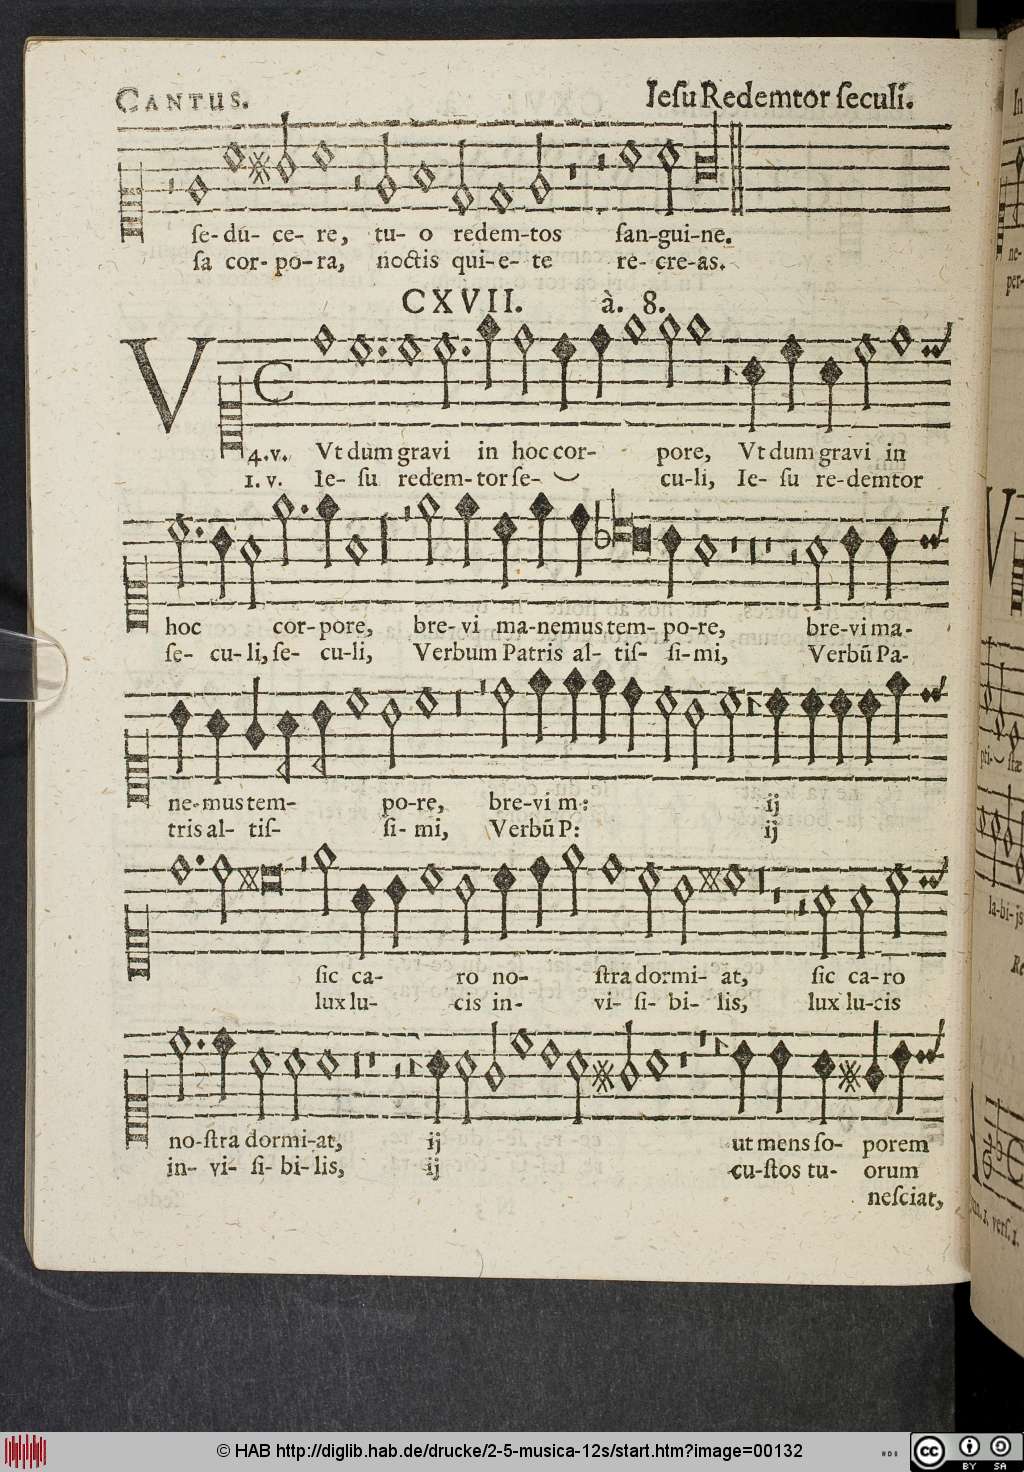 CANTUS. Iesu Redemtor seculi.
se- du- ce- re, tu- o redem-tos san-gui-ne.
sa cor- po-ra, noctis qui-e- te re- cre-as.
CXVII. à. 8.
V
4.v. Vt dum gravi in hoc cor- pore, Vt dum gravi in
1. v. Ie- su redem-tor se- cu-li, Ie- su re-demtor
hoc cor-pore, bre-vi ma-nemus tem- po-re, bre-vi ma-
se- cu- li, se- cu-li, Verbum Patris al- tis- si-mi, Verbũ Pa-
ne-mus tem- po-re, bre-vi m: ij
tris al- tis- si- mi, Verbũ P: ij
sic ca- ro no- stra dormi- at, sic ca-ro
lux lu- cis in- vi- si- bi- lis, lux lu-cis
no-stra dormi-at, ij ut mens so- porem
in- vi- si- bi-lis, ij cu-stos tu- orum
nesciat,
In
ne-
per-
pti- stæ
la-bi-js
Re
© HAB http://diglib.hab.de/drucke/2-5-musica-12s/start.htm?image=00132
HAB
cc BY SA